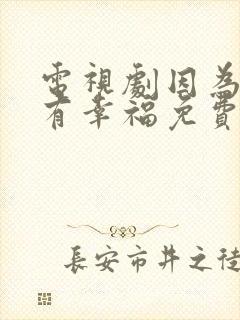 電視劇因為
有幸福免費
長安市井之徒